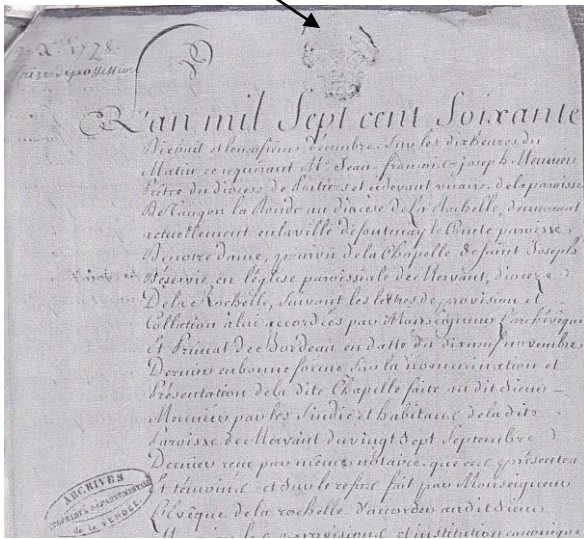 Xbre 1778.
prise de possession
L'an mil Sept cent Soixante
Dixhuit et le onzième décembre, Sur les dix heures du
Matin ce requerant Mr. Jean françois joseph Meunier
Prêtre du diocese de Poitiers et cidevant vicaire de la paroisse
De Taugon la Ronde au diocese de La Rochelle, demeurant
actuellement en la ville de fontenay le Comte paroisse
De notre dame, pourvû de la Chapelle de Saint Joseph
Déservie en l'église paroissiale de Mervant, diocèze
De la Rochelle, Suivant les lettres de provision et
Collation à lui accordées par Monseigneur L'archévêque
Et Primat de Bordeau en datte du dixneuf novembre
Dernier en bonne forme Sur la nommination et
Présentation de la dite Chapelle faite au dit Sieur
Meunier par les Sindic et habitans de la dite
Paroisse de Mervant du vingt Sept Septembre
Dernier reçu par même notaire que ces présentes
Et témoins et Sur le refus fait par Monseigneur
L'Evêque de la rochelle d'accorder au dit Sieur
provisions et institution canonique
ARCHIVES
DEPARTEMENTALES
de la VENDÉE